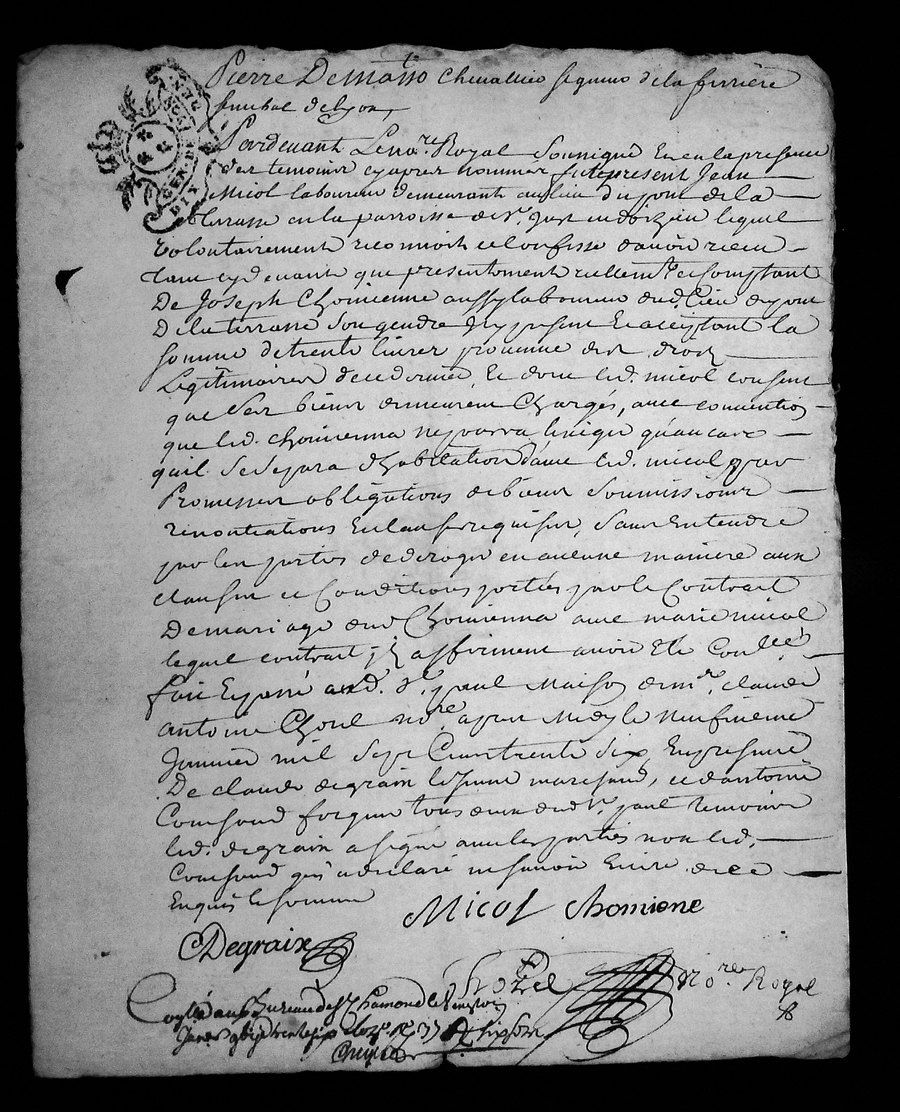 GEN. DE LYON
DIX DEN.
Pierre Dematto Chevallier seigneur de la ferrière
senechal de lyon,
Pardevant Le no.re Royal Soussigné Et en la presence
des temoins cy apres nommes fut present Jean
Micol laboureur demeurant au lieu du pont de la
terrasse en la parroisse de S.t Just en doizieu lequel
volontairement reconnoit et confesse d'avoir receu
tant cy devant que presentement reellem.t et Comptant
De Joseph Chomienne aussy laboureur dud. lieu du pont
De la terrasse Son gendre Icy present Et acceptant la
somme de trente livres provenue des droits
Legitimaires de ce dernier, Et dont led. micol consent
que Ses biens demeurent Chargés, avec convention
que led. chomienne ne pourra l'exiger qu'au cas
qu'il Se Separa d'habitation d'avec led. micol par
Promesses obligations de biens Soumissions
renontiations Et clauses requises, Sans Entendre
par les parties de deroger en aucune maniere aux
clauses et Conditions portées par le Contrait
De mariage dud Chomienne avec marie micol
lequel contrait ils affirment avoir Eté Conllé
fait Et passé aud. S.t paul Maison de m.e claude
antoine Chorel no.re apres Midy le Neufvieme
Janvier mil Sept Cent trente Six, En presence
De claude degraix le Jeune marchand, et d'antoine
Couchoud forgeur tous deux dud S.t paul temoins
led. degraix a signé avec les parties non led.
Couchoud qui a declaré ne sçavoir Ecrire de ce
Enquis Et sommé
Micol Chomiene
Degraix
Chorel No.re Royal
Conllé au Bureau de S.t Chamond le vingt
Janvier